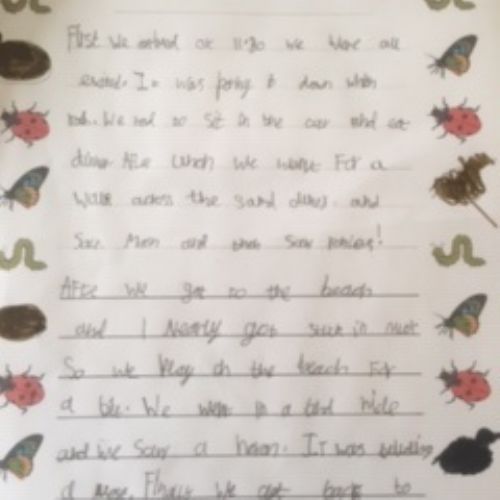 First we arived at 11:30 we were all
exited. It was poring it down with
rain. We had to sit in the car and eat
dinner. Afte lunch we went For a
walk across the sand dunes. and
Saw Men and then Saw ponies!
Afte we got to the beach
and I Nearly got stuck in mud
So we Play on the beach For
a bit. We went in a bird hide
and we Saw a heron. It was
a Nose. Finaly We got back to